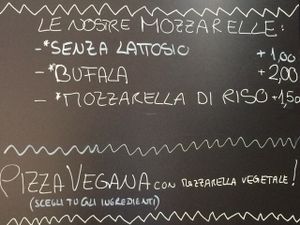 LE NOSTRE MOZZARELLE:
- *SENZA LATTOSIO +1,00
- *BUFALA +2,00
- *MOZZARELLA DI RISO +1,50
PIZZA VEGANA CON MOZZARELLA VEGETALE!
(SCEGLI TU GLI INGREDIENTI)